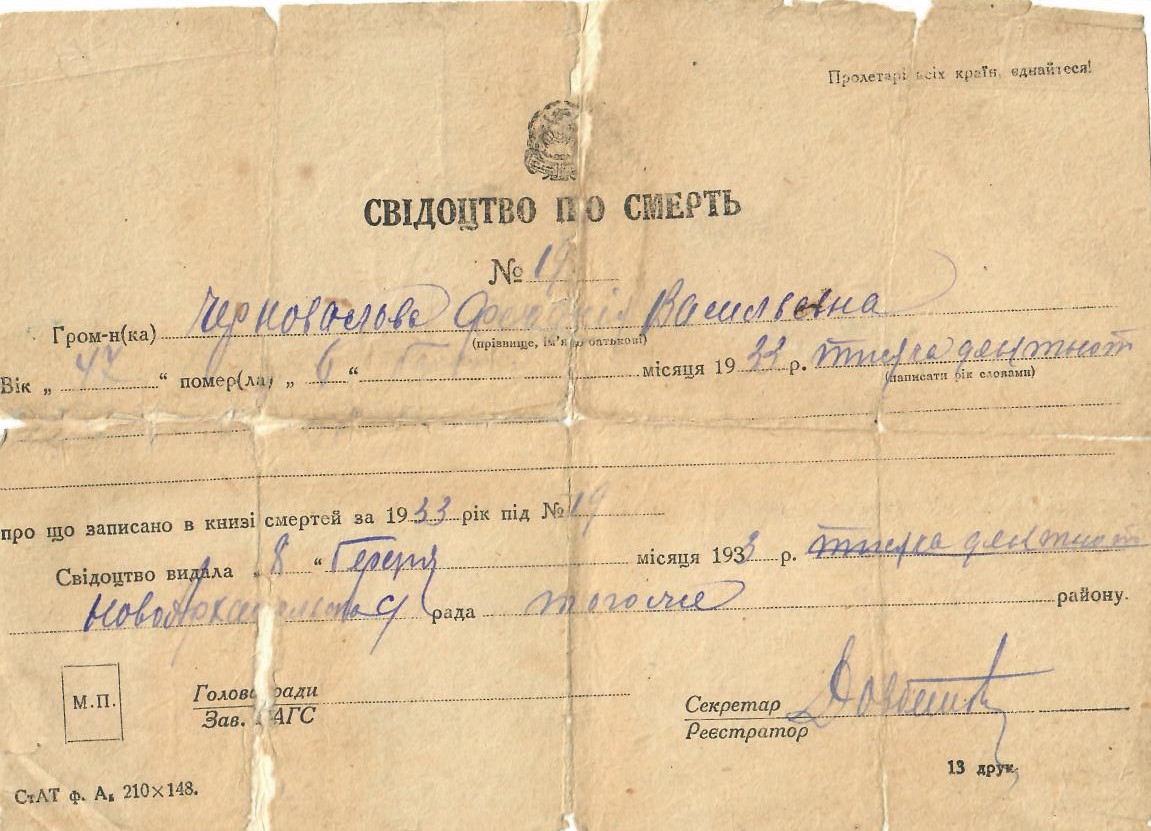 Пролетарі всіх країн, єднайтеся!
СВІДОЦТВО ПРО СМЕРТЬ
№ 19
Гром-н(ка) Васильевна
(прівнище, ім'я по батькові)
Вік „ 47 “ помер(ла) „ 6 “ місяця 1933 р. тисяча девятнот
(написати рік словами)
про що записано в книзі смертей за 1933 рік під № 19
Свідоцтво видала „ 8 “ місяця 1933 р. тисяча девятнот
рада того же району.
М.П.
Голова ради
Зав. ЗАГС
Секретар
Реєстратор
13 друк.
СтАТ ф. А₅ 210×148.